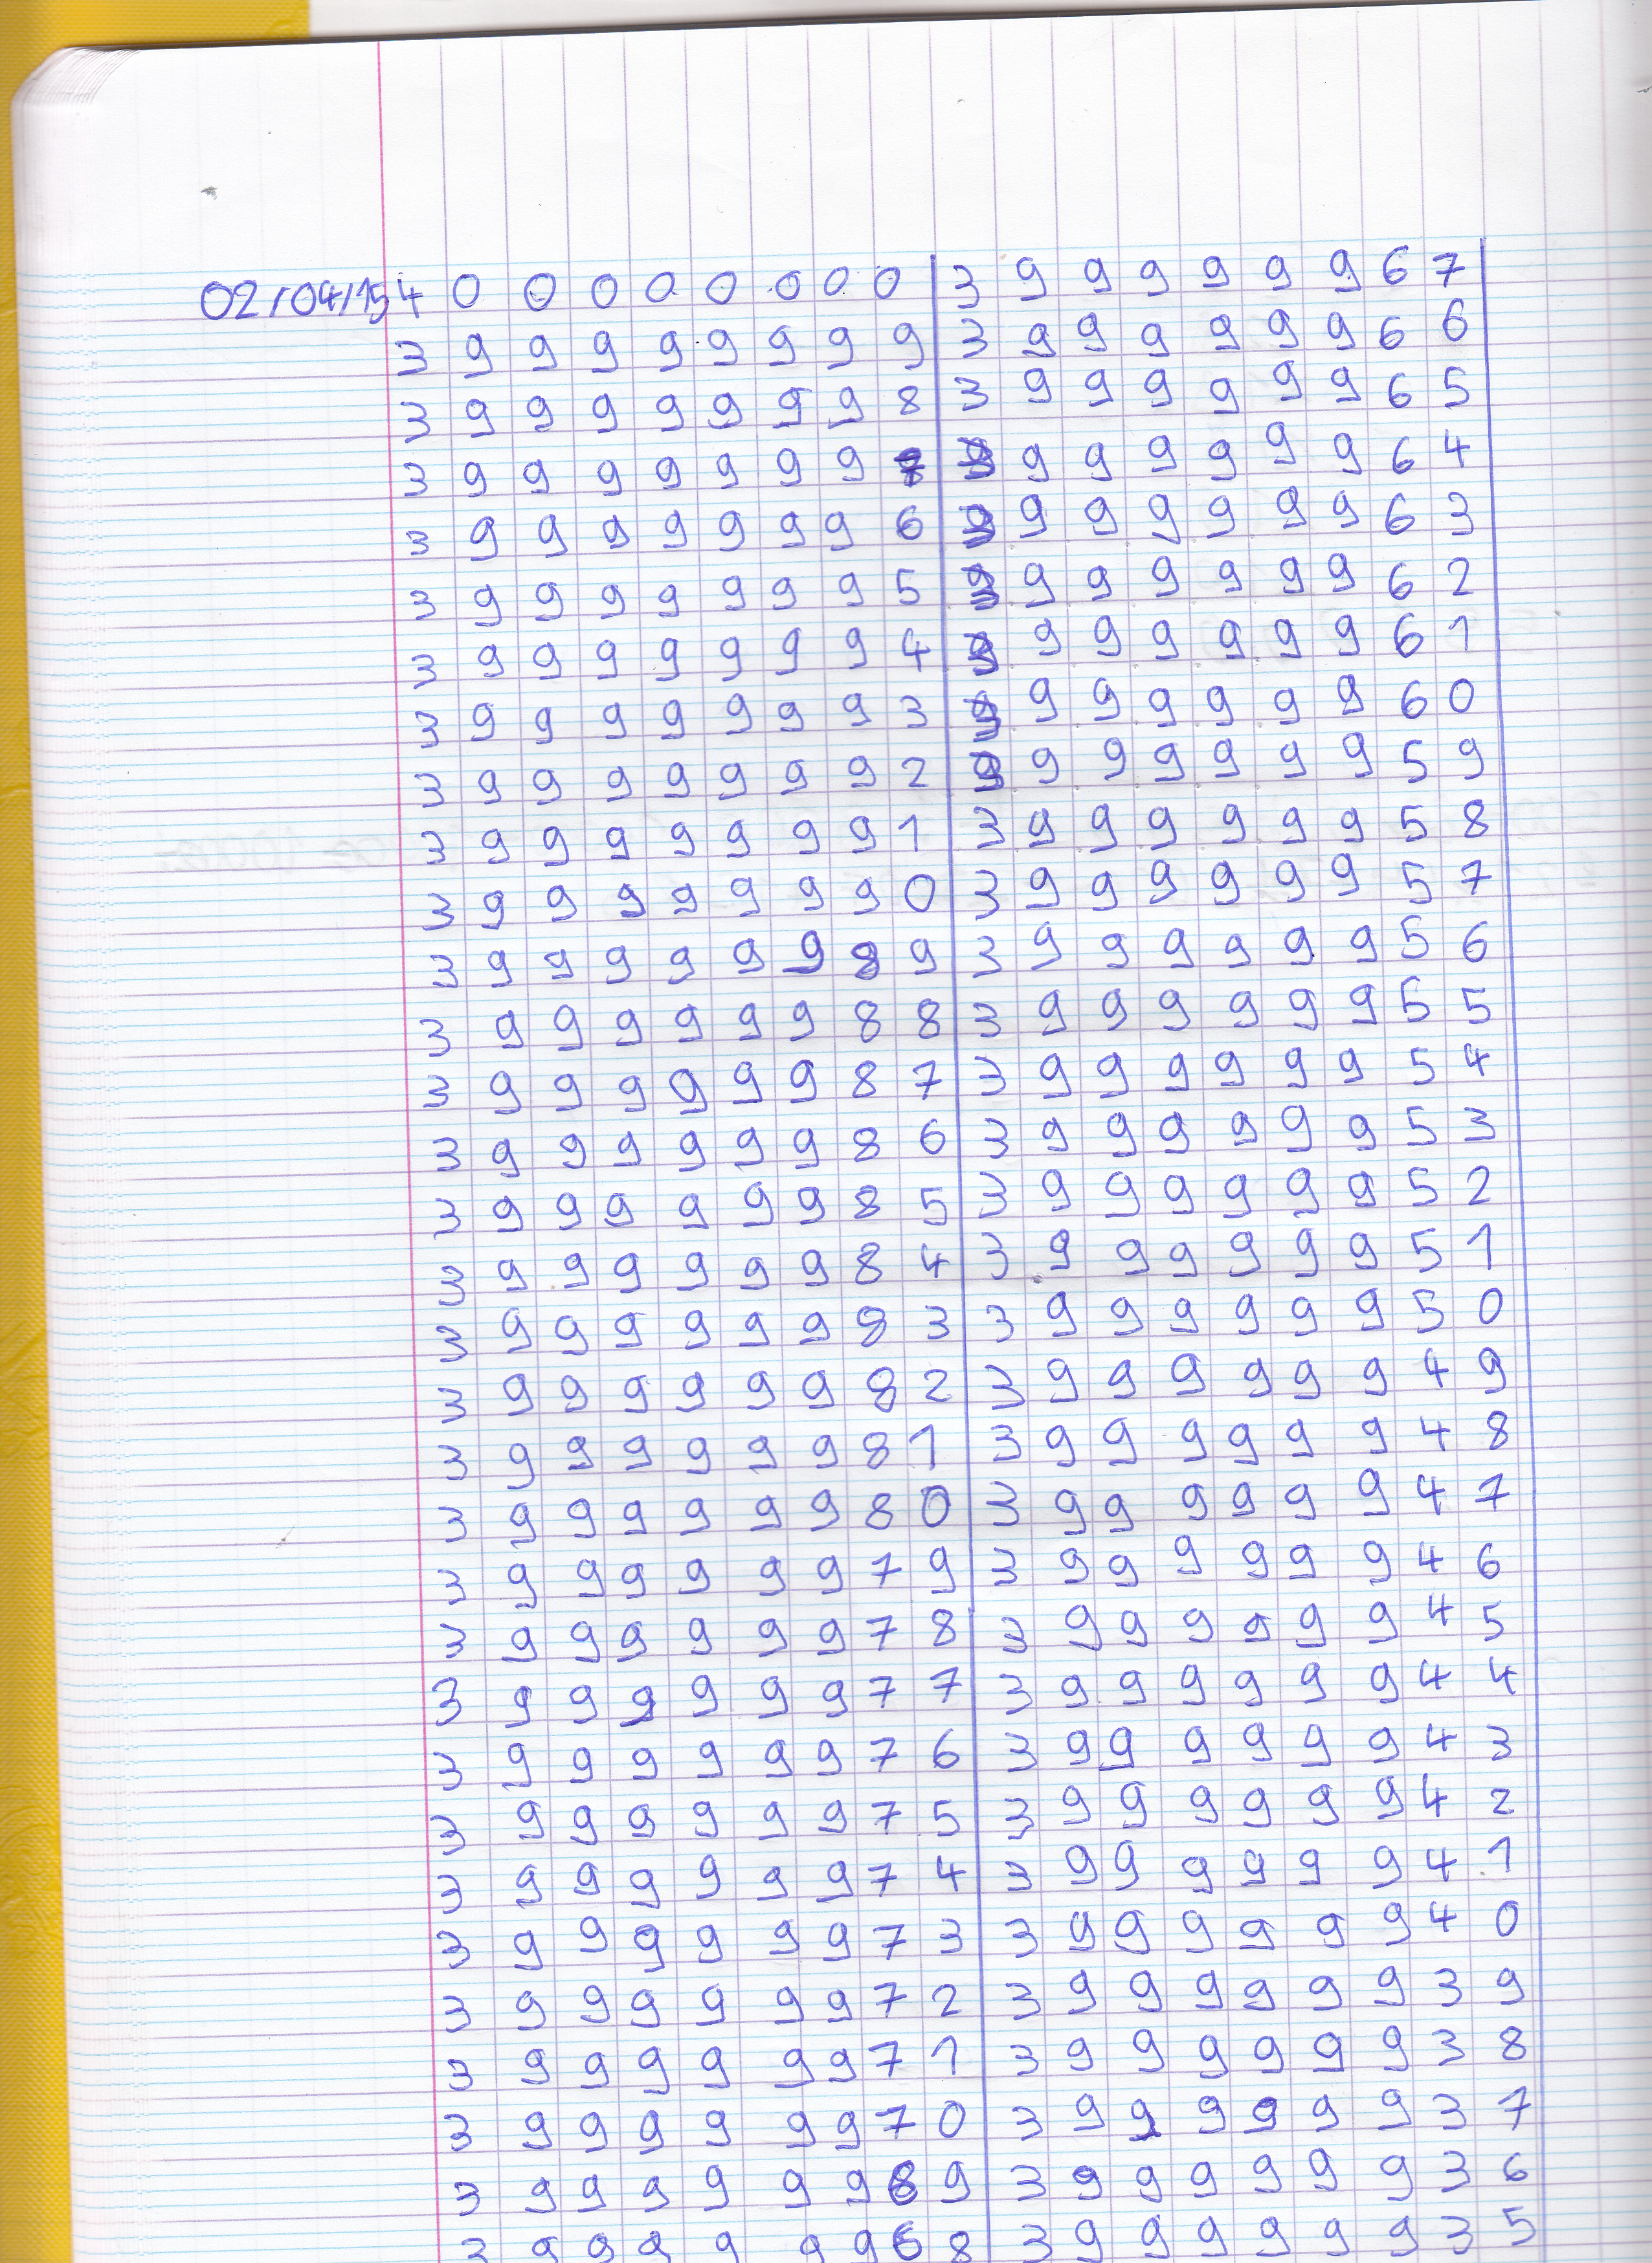 02/04/15 4 0 0 0 0 0 0 0 0
3 9 9 9 9 9 9 9 9
3 9 9 9 9 9 9 9 8
3 9 9 9 9 9 9 9 7
3 9 9 9 9 9 9 9 6
3 9 9 9 9 9 9 9 5
3 9 9 9 9 9 9 9 4
3 9 9 9 9 9 9 9 3
3 9 9 9 9 9 9 9 2
3 9 9 9 9 9 9 9 1
3 9 9 9 9 9 9 9 0
3 9 9 9 9 9 9 8 9
3 9 9 9 9 9 9 8 8
3 9 9 9 9 9 9 8 7
3 9 9 9 9 9 9 8 6
3 9 9 9 9 9 9 8 5
3 9 9 9 9 9 9 8 4
3 9 9 9 9 9 9 8 3
3 9 9 9 9 9 9 8 2
3 9 9 9 9 9 9 8 1
3 9 9 9 9 9 9 8 0
3 9 9 9 9 9 9 7 9
3 9 9 9 9 9 9 7 8
3 9 9 9 9 9 9 7 7
3 9 9 9 9 9 9 7 6
3 9 9 9 9 9 9 7 5
3 9 9 9 9 9 9 7 4
3 9 9 9 9 9 9 7 3
3 9 9 9 9 9 9 7 2
3 9 9 9 9 9 9 7 1
3 9 9 9 9 9 9 7 0
3 9 9 9 9 9 9 6 9
3 9 9 9 9 9 9 6 8
3 9 9 9 9 9 9 6 7
3 9 9 9 9 9 9 6 6
3 9 9 9 9 9 9 6 5
3 9 9 9 9 9 9 6 4
3 9 9 9 9 9 9 6 3
3 9 9 9 9 9 9 6 2
3 9 9 9 9 9 9 6 1
3 9 9 9 9 9 9 6 0
3 9 9 9 9 9 9 5 9
3 9 9 9 9 9 9 5 8
3 9 9 9 9 9 9 5 7
3 9 9 9 9 9 9 5 6
3 9 9 9 9 9 9 5 5
3 9 9 9 9 9 9 5 4
3 9 9 9 9 9 9 5 3
3 9 9 9 9 9 9 5 2
3 9 9 9 9 9 9 5 1
3 9 9 9 9 9 9 5 0
3 9 9 9 9 9 9 4 9
3 9 9 9 9 9 9 4 8
3 9 9 9 9 9 9 4 7
3 9 9 9 9 9 9 4 6
3 9 9 9 9 9 9 4 5
3 9 9 9 9 9 9 4 4
3 9 9 9 9 9 9 4 3
3 9 9 9 9 9 9 4 2
3 9 9 9 9 9 9 4 1
3 9 9 9 9 9 9 4 0
3 9 9 9 9 9 9 3 9
3 9 9 9 9 9 9 3 8
3 9 9 9 9 9 9 3 7
3 9 9 9 9 9 9 3 6
3 9 9 9 9 9 9 3 5